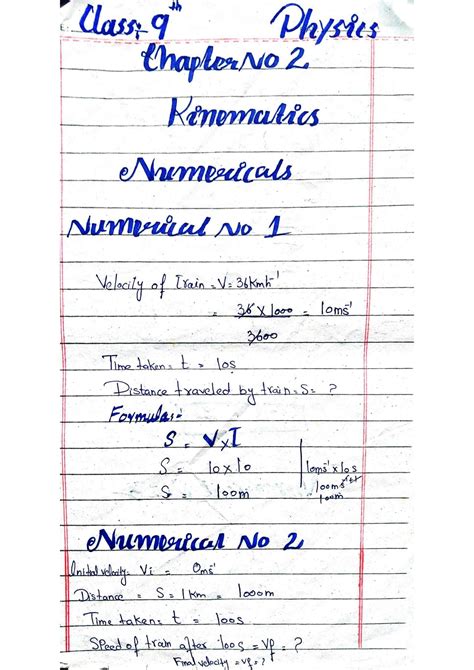 Class:- 9th Physics
Chapter No 2
Kinematics
Numericals
Numerical No 1
Velocity of Train = V = 36Kmh⁻¹
= 36 X 1000 = 10ms⁻¹
3600
Time taken = t = 10s
Distance traveled by train = S = ?
Formula:-
S = V x T
S = 10 x 10 10ms⁻¹ x 10s
S = 100m 100ms⁻¹⁺¹
100m
Numerical No 2
Initial velocity = Vi = 0ms⁻¹
Distance = S = 1 Km = 1000m
Time taken = t = 100s
Speed of train after 100s = Vf = ?
Final velocity = vf = ?